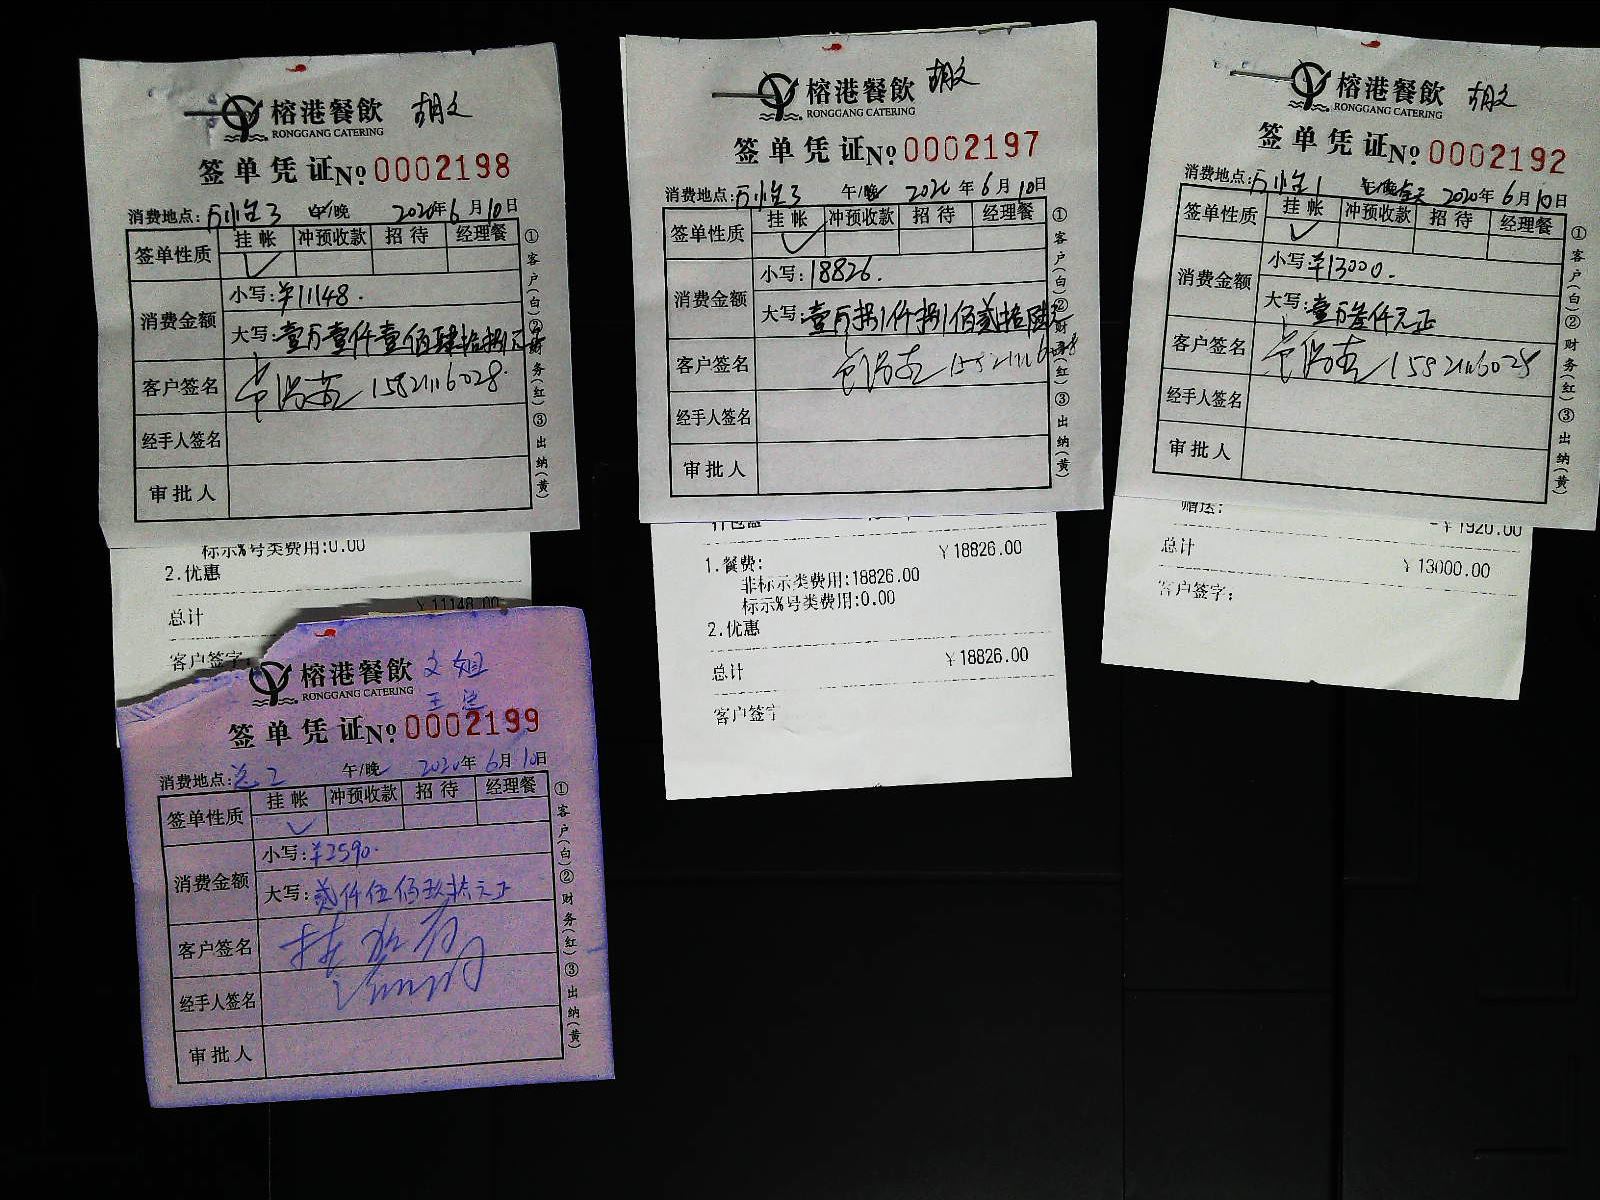 榕港餐飲 胡文
RONGGANG CATERING
签单凭证No 0002198
消费地点: 3 午/晚 2020年6月10日
签单性质 挂帐 冲预收款 招待 经理餐
消费金额 小写:¥11148.
大写:壹万壹仟壹佰肆拾捌元正
客户签名 15821116028.
经手人签名
审批人
①客户(白)②财务(红)③出纳(黄)
标示%号类费用:0.00
2.优惠
总计 ¥11148.00
客户签字:
榕港餐飲 胡文
RONGGANG CATERING
签单凭证No 0002197
消费地点: 3 午/晚 2020年6月10日
签单性质 挂帐 冲预收款 招待 经理餐
消费金额 小写:18826.
大写:壹万捌仟捌佰贰拾陆元
客户签名 15821116028
经手人签名
审批人
①客户(白)②财务(红)③出纳(黄)
1.餐费: ¥18826.00
非标示类费用:18826.00
标示%号类费用:0.00
2.优惠
总计 ¥18826.00
客户签字
榕港餐飲 胡文
RONGGANG CATERING
签单凭证No 0002192
消费地点: 1 午/晚全天 2020年6月10日
签单性质 挂帐 冲预收款 招待 经理餐
消费金额 小写:¥13000.
大写:壹万叁仟元正
客户签名 15821116028
经手人签名
审批人
①客户(白)②财务(红)③出纳(黄)
赠送: -¥1920.00
总计 ¥13000.00
客户签字:
榕港餐飲 文姐
RONGGANG CATERING 王
签单凭证No 0002199
消费地点: 2 午/晚 2020年6月10日
签单性质 挂帐 冲预收款 招待 经理餐
消费金额 小写:¥2590.
大写:贰仟伍佰玖拾元正
客户签名
经手人签名
审批人
①客户(白)②财务(红)③出纳(黄)